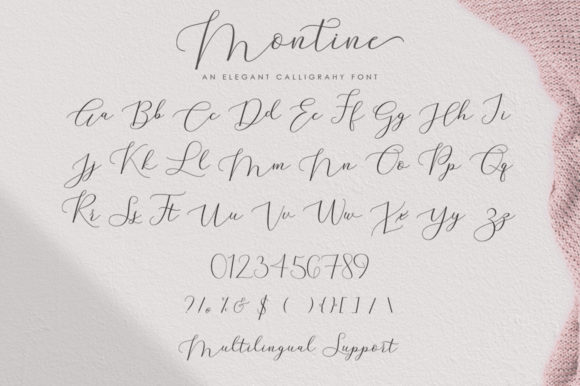 Montine
AN ELEGANT CALLIGRAHY FONT
Aa Bb Cc Dd Ee Ff Gg Hh Ii
Jj Kk Ll Mm Nn Oo Pp Qq
Rr Ss Ft Uu Vv Ww Xx Yy Zz
0123456789
Multilingual Support